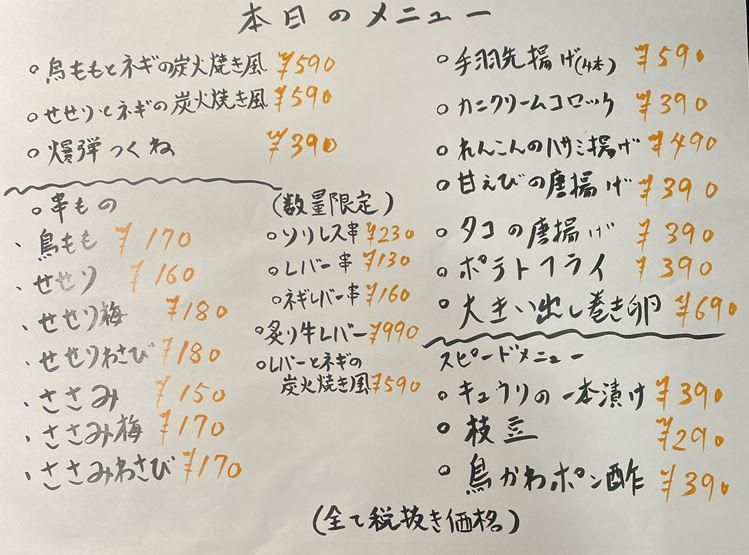 本日のメニュー
○鳥ももとネギの炭火焼き風 ¥590
○せせりとネギの炭火焼き風 ¥590
○爆弾つくね ¥390
○串もの
・鳥もも ¥170
・せせり ¥160
・せせり梅 ¥180
・せせりわさび ¥180
・ささみ ¥150
・ささみ梅 ¥170
・ささみわさび ¥170
(数量限定)
○ソリレス串 ¥230
○レバー串 ¥130
○ネギレバー串 ¥160
○炙り牛レバー ¥990
○レバーとネギの
炭火焼き風 ¥590
○手羽先揚げ(4本) ¥590
○カニクリームコロッケ ¥390
○れんこんのハサミ揚げ ¥490
○甘えびの唐揚げ ¥390
○タコの唐揚げ ¥390
○ポテトフライ ¥390
○大きい出し巻き卵 ¥690
スピードメニュー
○キュウリの一本漬け ¥390
○枝豆 ¥290
○鳥かわポン酢 ¥390
(全て税抜き価格。)